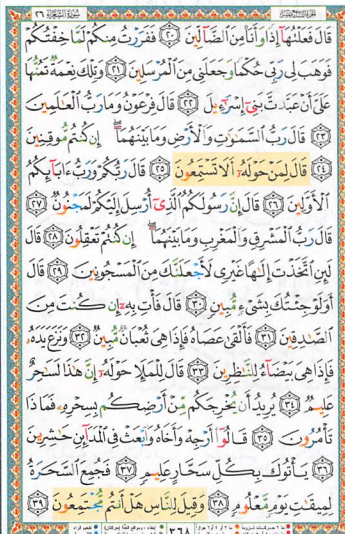 سورة الشعراء ٢٦
قَالَ فَعَلْتُهَا إِذًا وَأَنَا۠ مِنَ الضَّالِّينَ ﴿٢٠﴾ فَفَرَرْتُ مِنكُمْ لَمَّا خِفْتُكُمْ
فَوَهَبَ لِي رَبِّي حُكْمًا وَجَعَلَنِي مِنَ الْمُرْسَلِينَ ﴿٢١﴾ وَتِلْكَ نِعْمَةٌ تَمُنُّهَا
عَلَيَّ أَنْ عَبَّدتَّ بَنِي إِسْرَٰٓءِيلَ ﴿٢٢﴾ قَالَ فِرْعَوْنُ وَمَا رَبُّ الْعَٰلَمِينَ
﴿٢٣﴾ قَالَ رَبُّ السَّمَٰوَٰتِ وَالْأَرْضِ وَمَا بَيْنَهُمَا إِن كُنتُم مُّوقِنِينَ
﴿٢٤﴾ قَالَ لِمَنْ حَوْلَهُۥ أَلَا تَسْتَمِعُونَ ﴿٢٥﴾ قَالَ رَبُّكُمْ وَرَبُّ ءَابَآئِكُمُ
الْأَوَّلِينَ ﴿٢٦﴾ قَالَ إِنَّ رَسُولَكُمُ الَّذِي أُرْسِلَ إِلَيْكُمْ لَمَجْنُونٌ ﴿٢٧﴾
قَالَ رَبُّ الْمَشْرِقِ وَالْمَغْرِبِ وَمَا بَيْنَهُمَا إِن كُنتُمْ تَعْقِلُونَ ﴿٢٨﴾ قَالَ
لَئِنِ اتَّخَذْتَ إِلَٰهًا غَيْرِي لَأَجْعَلَنَّكَ مِنَ الْمَسْجُونِينَ ﴿٢٩﴾ قَالَ
أَوَلَوْ جِئْتُكَ بِشَيْءٍ مُّبِينٍ ﴿٣٠﴾ قَالَ فَأْتِ بِهِۦٓ إِن كُنتَ مِنَ
الصَّٰدِقِينَ ﴿٣١﴾ فَأَلْقَىٰ عَصَاهُ فَإِذَا هِيَ ثُعْبَانٌ مُّبِينٌ ﴿٣٢﴾ وَنَزَعَ يَدَهُۥ
فَإِذَا هِيَ بَيْضَآءُ لِلنَّٰظِرِينَ ﴿٣٣﴾ قَالَ لِلْمَلَإِ حَوْلَهُۥٓ إِنَّ هَٰذَا لَسَٰحِرٌ
عَلِيمٌ ﴿٣٤﴾ يُرِيدُ أَن يُخْرِجَكُم مِّنْ أَرْضِكُم بِسِحْرِهِۦ فَمَاذَا
تَأْمُرُونَ ﴿٣٥﴾ قَالُوٓا أَرْجِهْ وَأَخَاهُ وَابْعَثْ فِي الْمَدَآئِنِ حَٰشِرِينَ
﴿٣٦﴾ يَأْتُوكَ بِكُلِّ سَحَّارٍ عَلِيمٍ ﴿٣٧﴾ فَجُمِعَ السَّحَرَةُ
لِمِيقَٰتِ يَوْمٍ مَّعْلُومٍ ﴿٣٨﴾ وَقِيلَ لِلنَّاسِ هَلْ أَنتُم مُّجْتَمِعُونَ ﴿٣٩﴾
٢٦٨